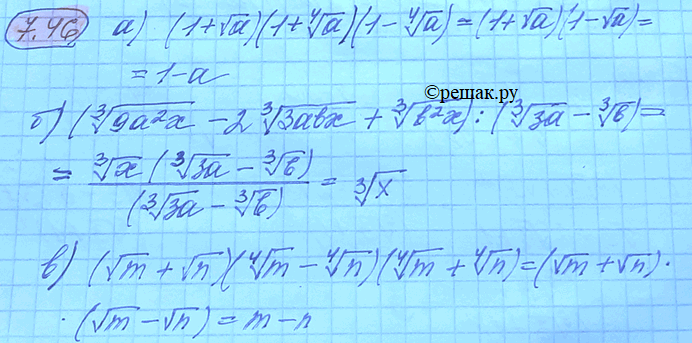 7.46) а) (1+√a)(1+⁴√a)(1-⁴√a)=(1+√a)(1-√a)=
=1-a
©решак.ру
б) (³√9a²x - 2³√3abx + ³√b²x) : (³√3a - ³√b)=
= ³√x (³√3a - ³√b) / (³√3a - ³√b) = ³√x
в) (√m + √n)(⁴√m - ⁴√n)(⁴√m + ⁴√n)=(√m + √n)·
·(√m - √n) = m - n